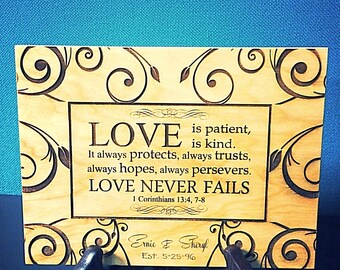 LOVE is patient,
is kind.
It always protects, always trusts,
always hopes, always perseveres.
LOVE NEVER FAILS
1 Corinthians 13:4, 7-8
Ernie & Sheryl
Est. 5-25-96